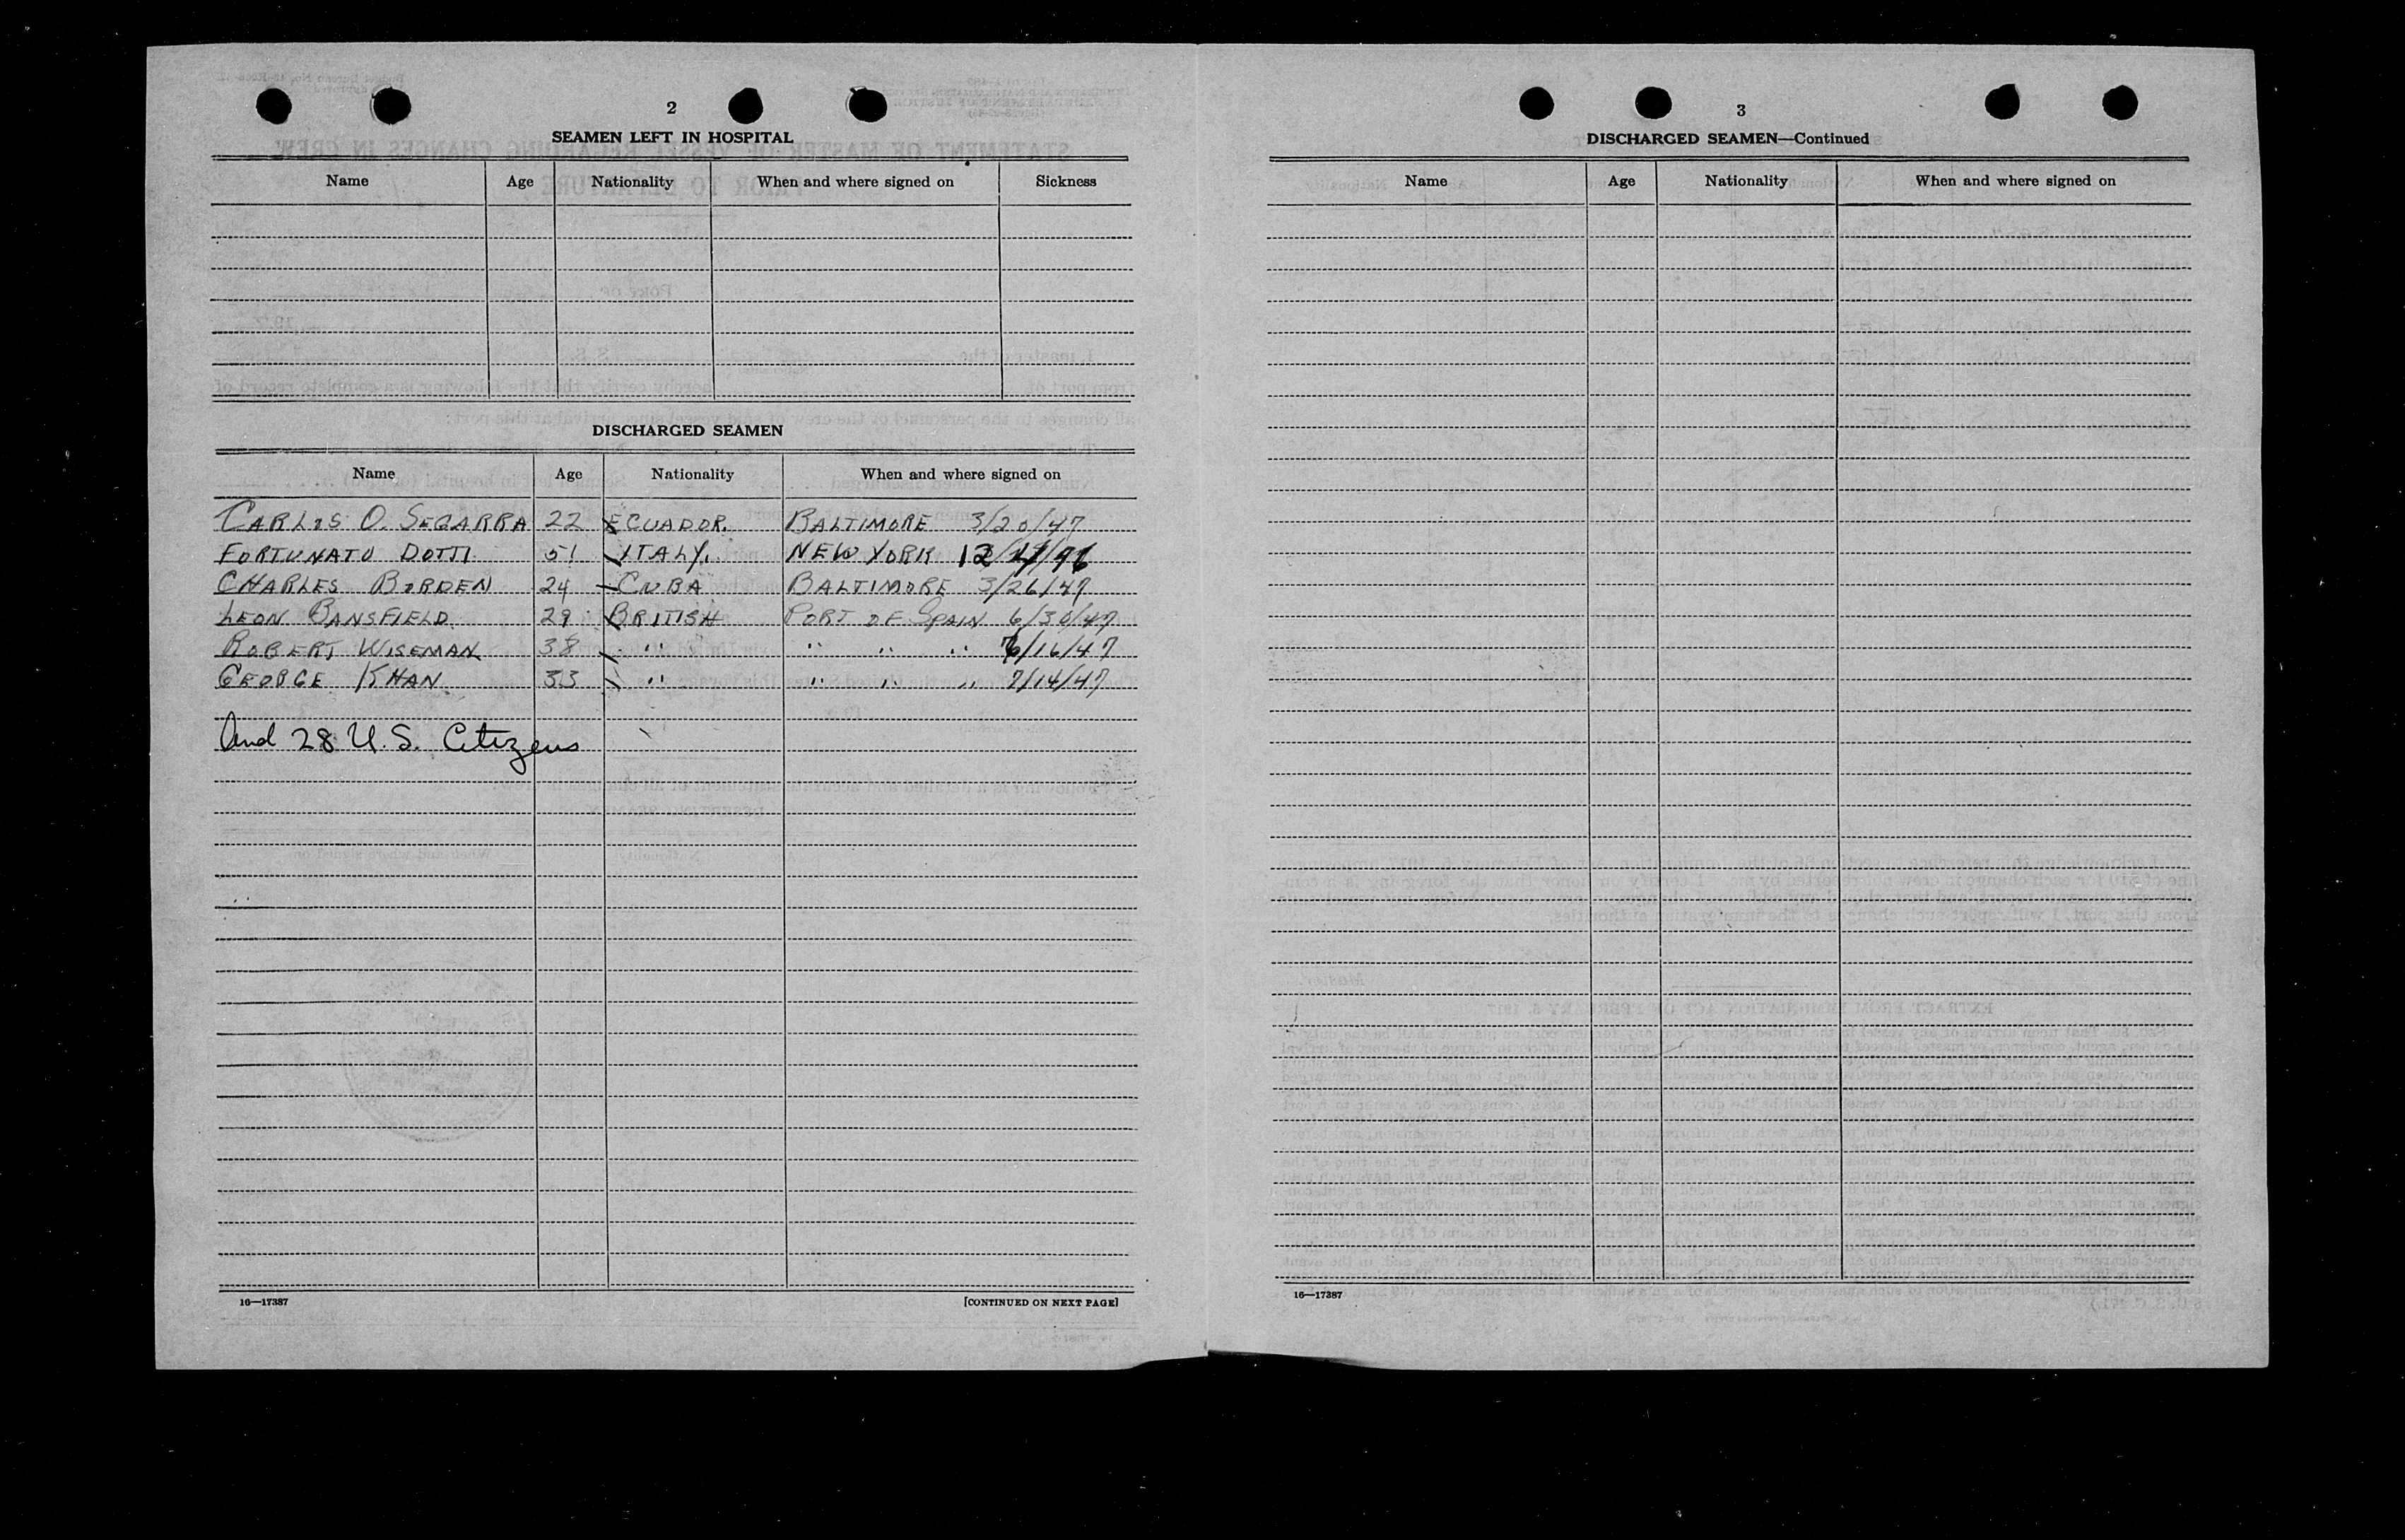 2
SEAMEN LEFT IN HOSPITAL
Name Age Nationality When and where signed on Sickness
DISCHARGED SEAMEN
Name Age Nationality When and where signed on
CARLOS O. SEGARRA 22 ECUADOR BALTIMORE 3/20/47
FORTUNATO DOTTI 51 ITALY. NEW YORK
CHARLES BORDEN 24 CUBA BALTIMORE 3/26/47
LEON BANSFIELD 29 BRITISH PORT OF SPAIN 6/30/47
ROBERT WISEMAN 38 " " " " /16/47
GEORGE KHAN 33 " " " " 7/14/47
And 28 U.S. Citizens
16—17387 [CONTINUED ON NEXT PAGE]
3
DISCHARGED SEAMEN—Continued
Name Age Nationality When and where signed on
16—17387